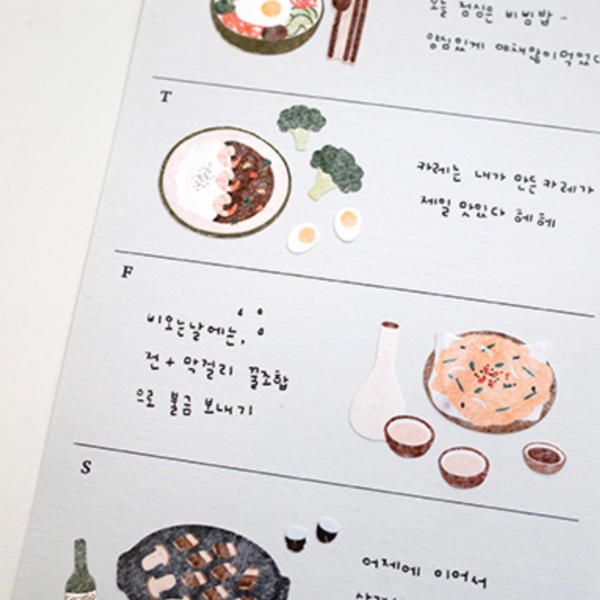 오늘 점심은 비빔밥 ~
양심있게 야채많이먹었다
T
카레는 내가 만든 카레가
제일 맛있다 헤헤
F
비오는날에는,
전 + 막걸리 꿀조합
으로 불금 보내기
S
어제에 이어서